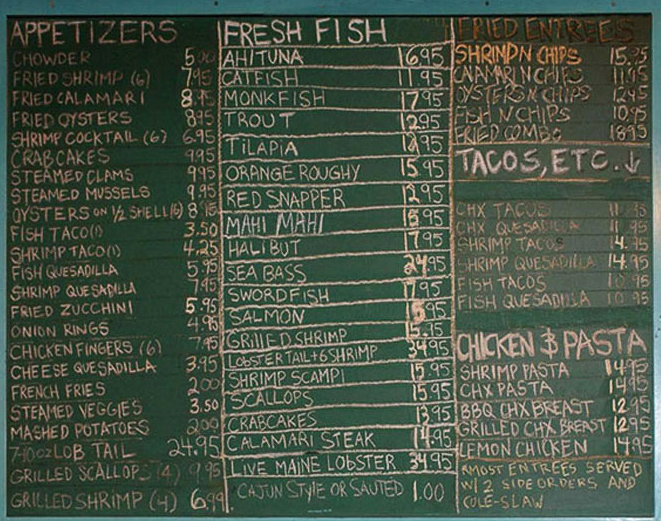 APPETIZERS
CHOWDER 5.00
FRIED SHRIMP (6) 7.95
FRIED CALAMARI 8.95
FRIED OYSTERS 8.95
SHRIMP COCKTAIL (6) 6.95
CRABCAKES 9.95
STEAMED CLAMS 9.95
STEAMED MUSSELS 9.95
OYSTERS ON ½ SHELL (6) 8.95
FISH TACO (1) 3.50
SHRIMP TACO (1) 4.25
FISH QUESADILLA 5.95
SHRIMP QUESADILLA 7.95
FRIED ZUCCHINI 5.95
ONION RINGS 4.95
CHICKEN FINGERS (6) 7.95
CHEESE QUESADILLA 3.95
FRENCH FRIES 2.00
STEAMED VEGGIES 3.50
MASHED POTATOES 2.00
LOB TAIL 24.95
GRILLED SCALLOPS (4) 9.95
GRILLED SHRIMP (4) 6.99
FRESH FISH
AHI TUNA 16.95
CATFISH 11.95
MONKFISH 17.95
TROUT 12.95
TILAPIA
ORANGE ROUGHY 15.95
RED SNAPPER 12.95
MAHI MAHI
HALIBUT 17.95
SEA BASS 24.95
SWORDFISH 17.95
SALMON
GRILLED SHRIMP 15.95
LOBSTER TAIL + 6 SHRIMP 34.95
SHRIMP SCAMPI 15.95
SCALLOPS 15.95
CRABCAKES 13.95
CALAMARI STEAK 14.95
LIVE MAINE LOBSTER 34.95
CAJUN STYLE OR SAUTED 1.00
FRIED ENTREES
SHRIMP N CHIPS 15.95
CALAMARI N CHIPS 11.95
OYSTERS N CHIPS 12.95
FISH N CHIPS 10.95
FRIED COMBO 18.95
TACOS, ETC. ↓
CHX TACOS 11.95
CHX QUESADILLA 11.95
SHRIMP TACOS 14.95
SHRIMP QUESADILLA 14.95
FISH TACOS 10.95
FISH QUESADILLA 10.95
CHICKEN & PASTA
SHRIMP PASTA 14.95
CHX PASTA 14.95
BBQ CHX BREAST 12.95
GRILLED CHX BREAST 12.95
LEMON CHICKEN 14.95
MOST ENTREES SERVED
W/ 2 SIDE ORDERS AND
COLE-SLAW